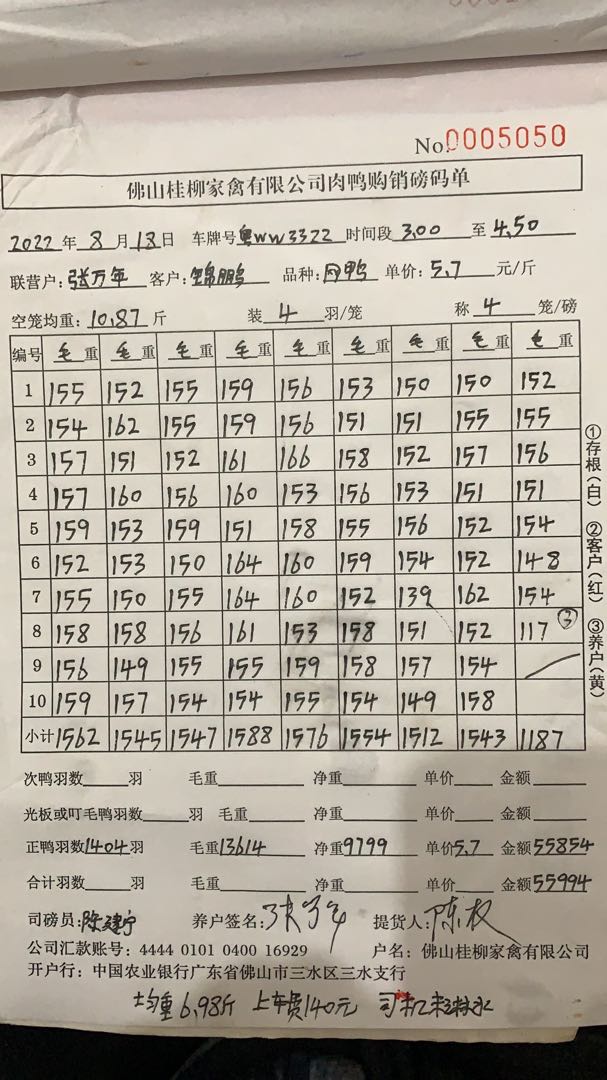 No.0005050
佛山桂柳家禽有限公司肉鸭购销磅码单
2022 年 8 月 18 日 车牌号 粤WW3322 时间段 3.00 至 4.50
联营户: 张万年 客户: 锦鹏 品种: 网鸭 单价: 5.7 元/斤
空笼均重: 10.87 斤 装 4 羽/笼 称 4 笼/磅
编号 毛重 毛重 毛重 毛重 毛重 毛重 毛重 毛重 毛重
1 155 152 155 159 156 153 150 150 152
2 154 162 155 159 156 151 151 155 155
3 157 151 152 161 166 158 152 157 156
4 157 160 156 160 153 156 153 151 151
5 159 153 159 151 158 155 156 152 154
6 152 153 150 164 160 159 154 152 148
7 155 150 155 164 160 152 139 162 154
8 158 158 156 161 153 158 151 152 117 ③
9 156 149 155 155 159 158 157 154
10 159 157 154 154 155 154 149 158
小计 1562 1545 1547 1588 1576 1554 1512 1543 1187
①存根(白) ②客户(红) ③养户(黄)
次鸭羽数 羽 毛重 净重 单价 金额
光板或叮毛鸭羽数 羽 毛重 净重 单价 金额
正鸭羽数 1404 羽 毛重 13614 净重 9799 单价 5.7 金额 55854
合计羽数 羽 毛重 净重 单价 金额 55994
司磅员: 陈建宁 养户签名: 提货人: 陈权
公司汇款账号: 4444 0101 0400 16929 户名: 佛山桂柳家禽有限公司
开户行: 中国农业银行广东省佛山市三水区三水支行
均重6.98斤 上车费140元 司机